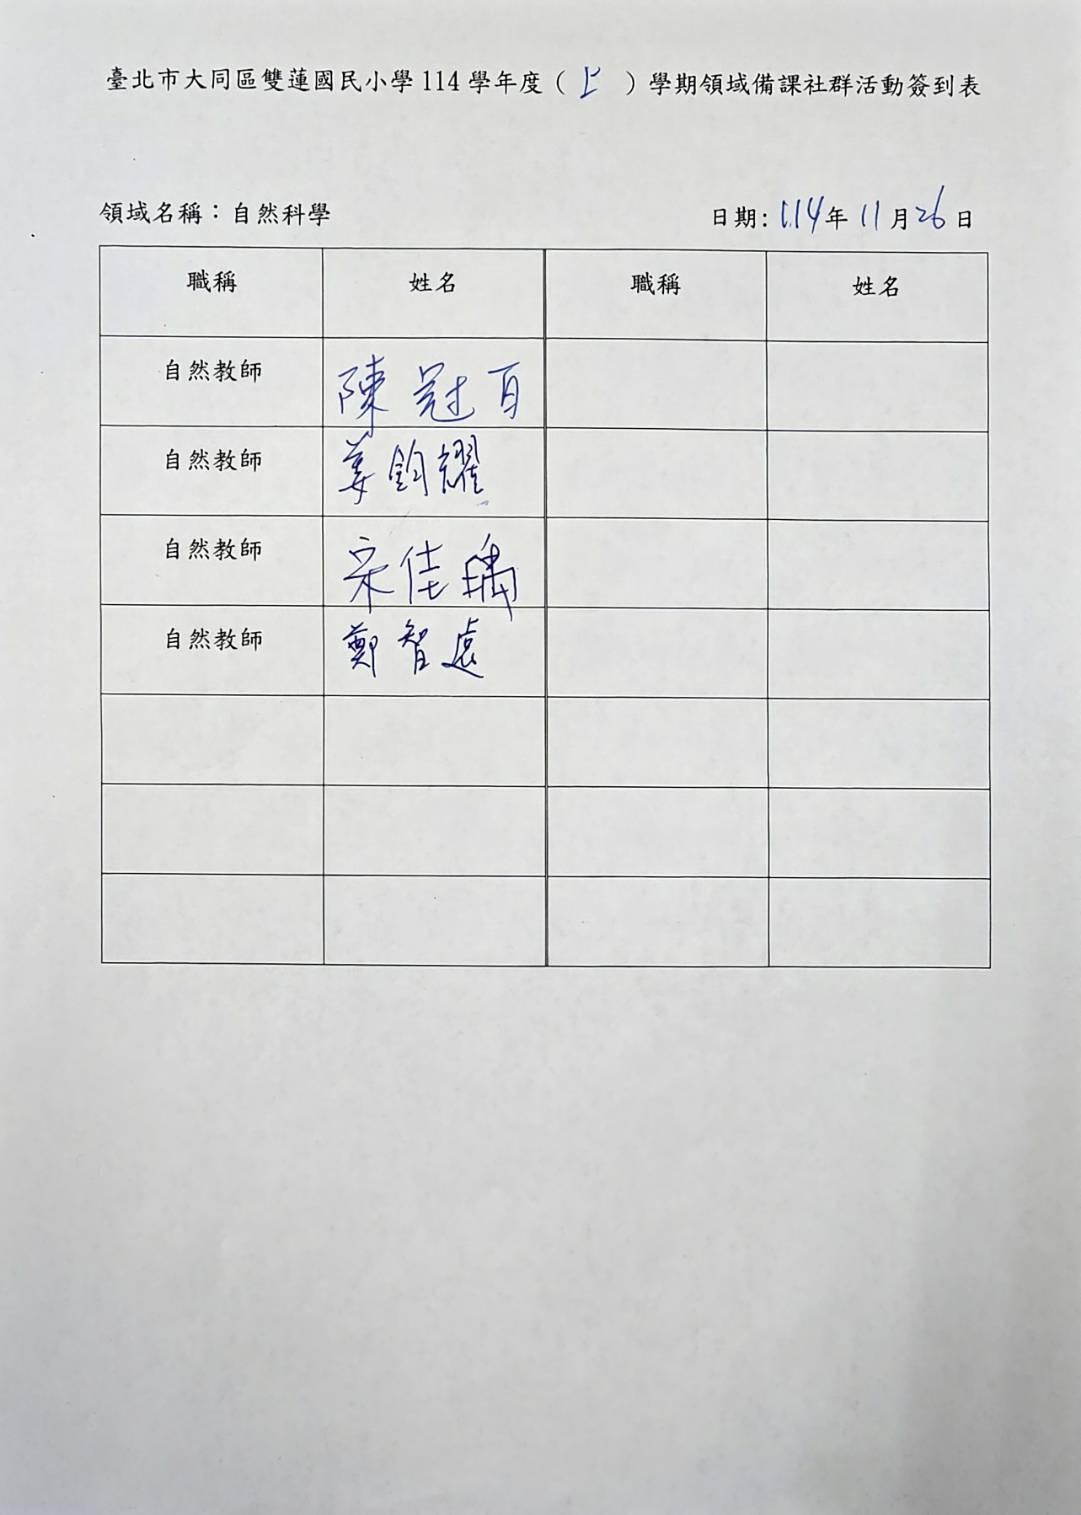 臺北市大同區雙蓮國民小學 114 學年度（上）學期領域備課社群活動簽到表
領域名稱：自然科學 日期: 114年 11月26日
職稱 姓名 職稱 姓名
自然教師 陳冠百
自然教師 姜鈞耀
自然教師 宋佳瑀
自然教師 鄭智遠